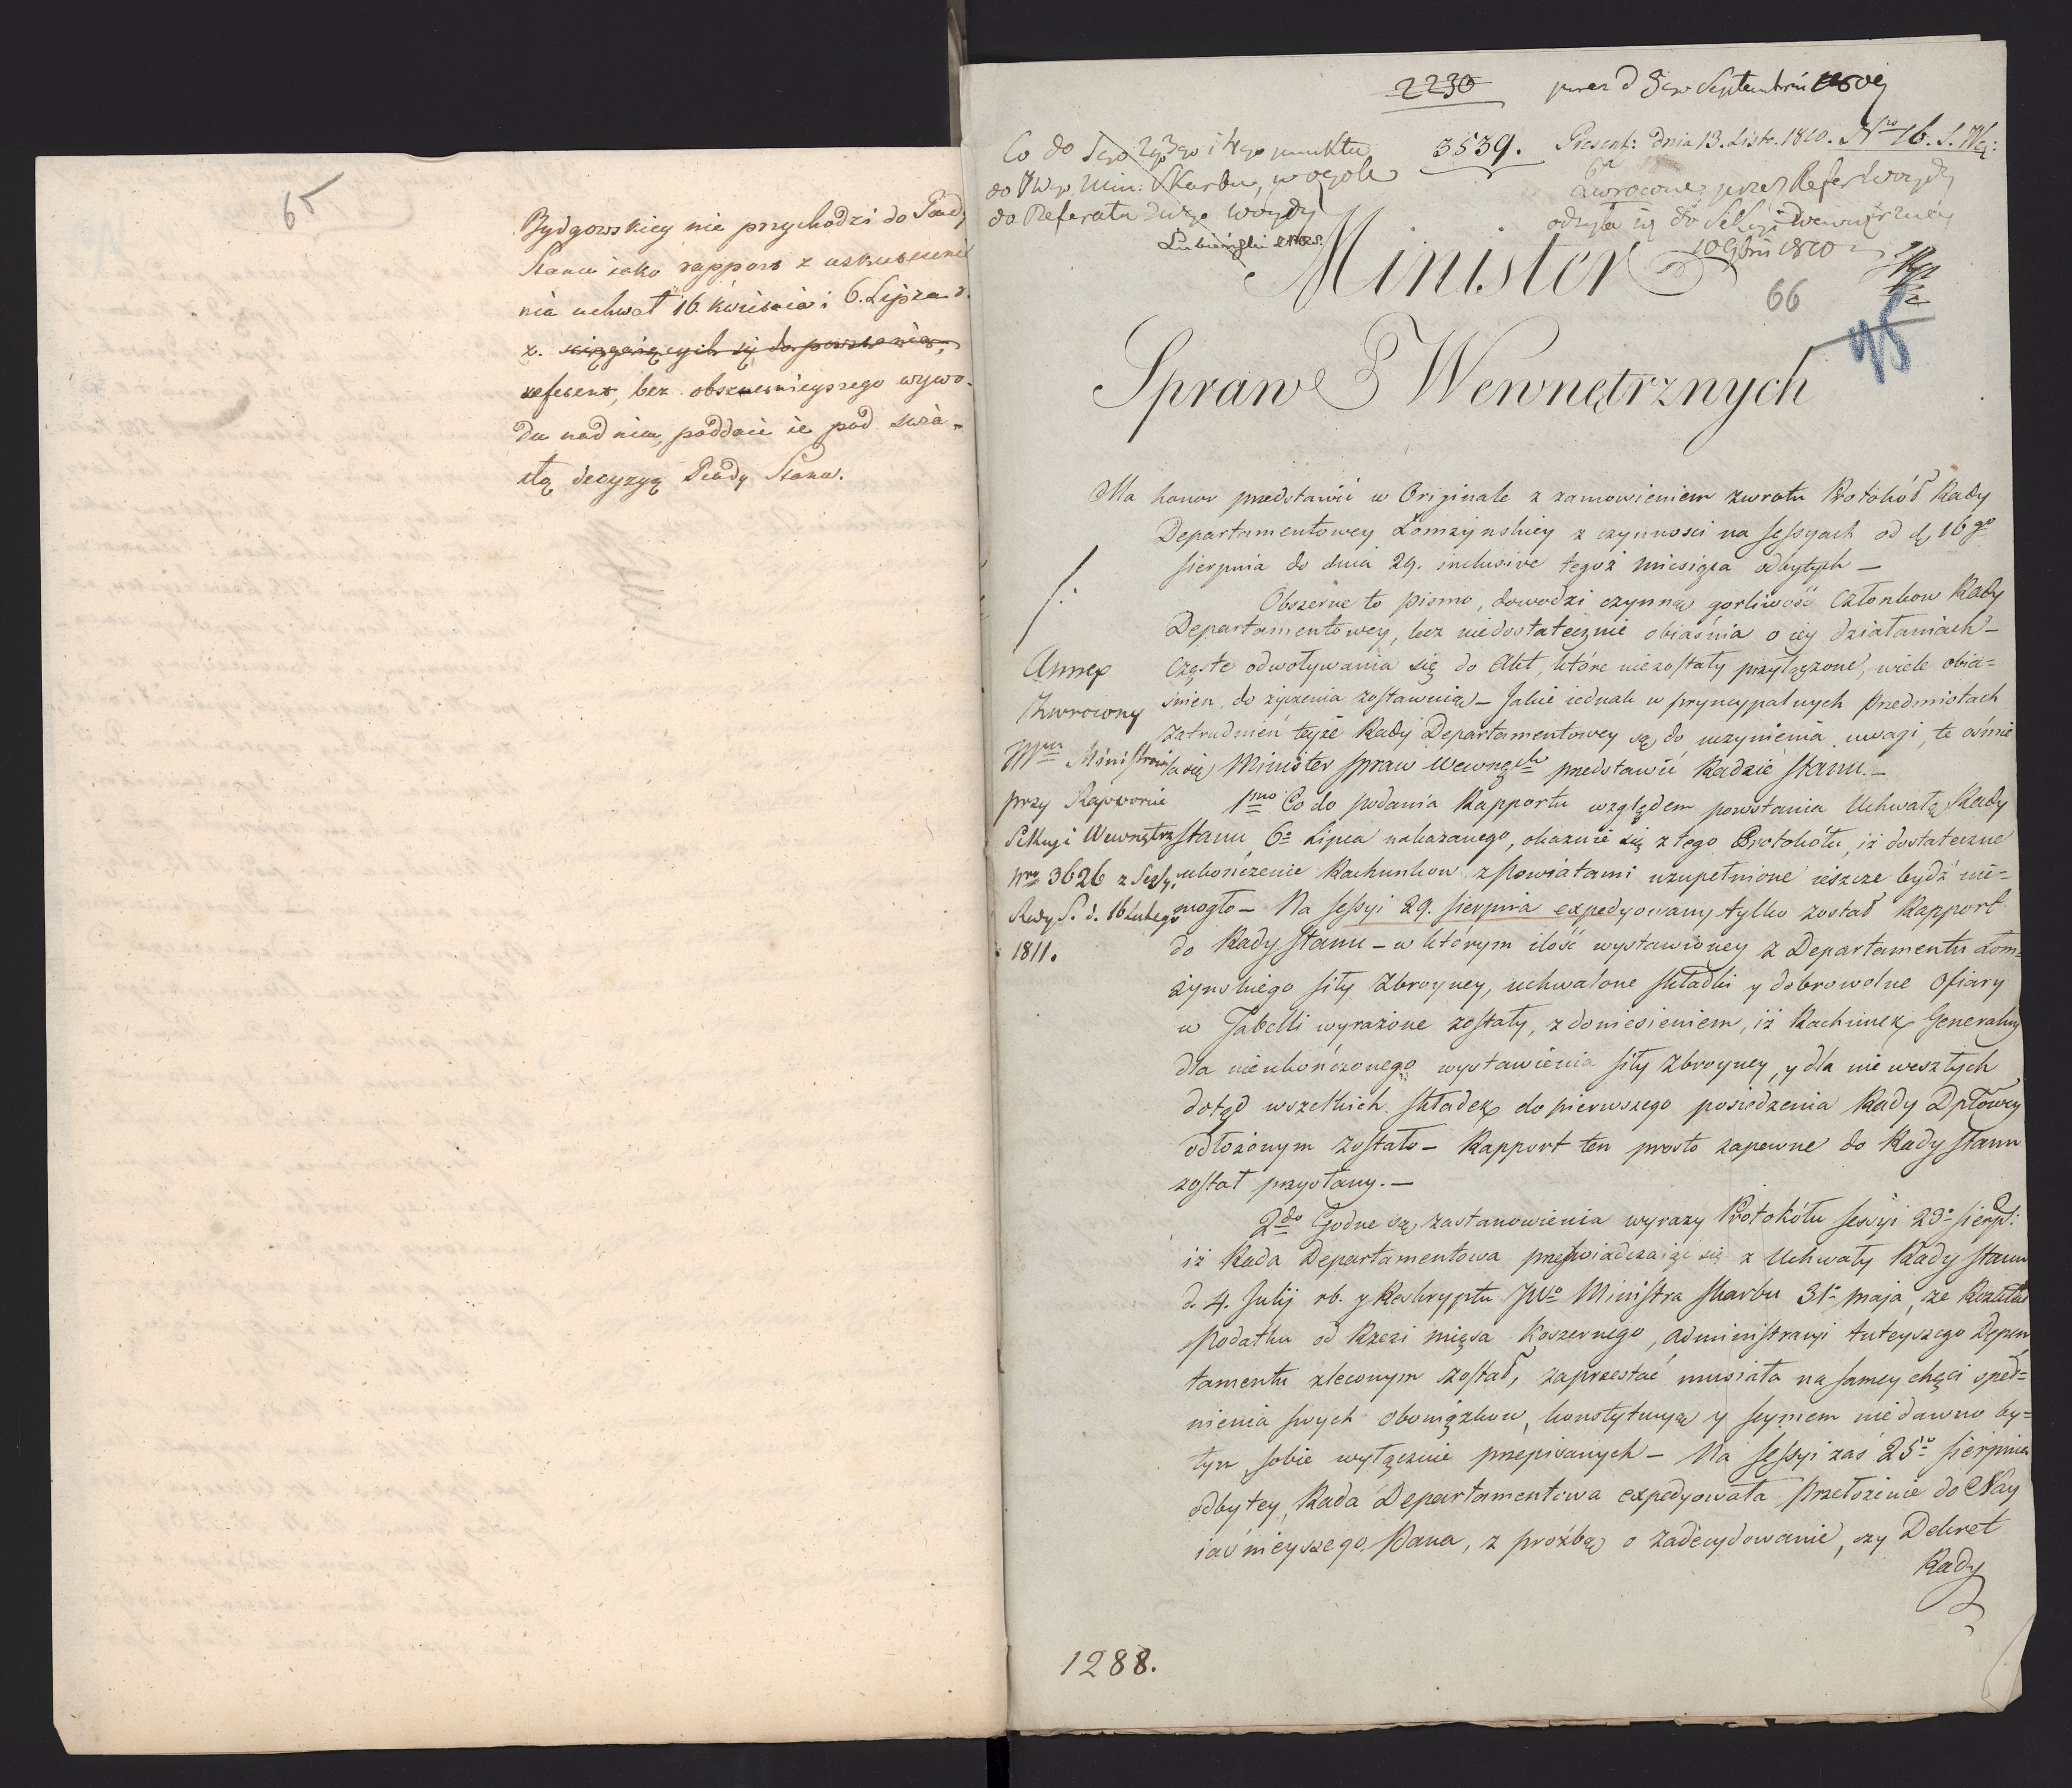 65
Bydgowskiey nie przychodzi do Rady
Stanu iako rapport z uskutecznie
nia uchwał 16. kwietnia i 6. Lipca r.
z. ściągaiących się do powstania,
referent, bez obszernieyszego wywo-
du nad niem, poddaie ie pod świa-
tłą decyzyą Rady Stanu.
2230
3539. Present: dnia 13. Listo. 1810. Nro 16. S. We:
Co do 1go 2go 3go i 4go punktu
do JWgo Min: Skarbu, w ogole
do Referatu JWgo Woydy
Lubieński
zwrocone przez Refer Woydę
odsyła się do Sekcyi Wewnętrzney
10 1810
66
95
Minister
Spraw Wewnętrznych
Ma honor przedstawić w Originale z zamowieniem zwrotu Protokół Rady
Departamentowey Łomżyńskiey z czynnosci na Sessyach od d. 16go
Sierpnia do dnia 29. inclusive tegoż miesiąca odbytych —
Obszerne to pismo, dowodzi czynną gorliwość Członkow Rady
Departamentowey, lecz niedostatecznie obiaśnia o iey działaniach —
Częste odwoływania się do Akt, które niezostały przyłączone, wiele obia=
śnien, do życzenia zostawuią — Jakie iednak w pryncypalnych Przedmiotach
zatrudnień teyże Rady Departamentowey są do uczynienia uwagi, te ośmie
la się Minister Spraw Wewnęch przedstawić Radzie Stanu. —
1mo Co do podania Rapportu względem powstania Uchwałą Rady
Stanu 6o Lipca nakazanego, okazuie się z tego Protokółu, iż dostateczne
ukończenie Rachunkow z Powiatami uzupełnione ieszcze bydź nie=
mogło — Na Sessyi 29. Sierpnia expedyowany tylko został Rapport
do Rady Stanu — w którym ilość wystawioney z Departamentu Łom=
żyńskiego siły zbroyney, uchwalone składki y dobrowolne Ofiary
w Tabelli wyrażone zostały, z doniesieniem, iż Rachunek Generalny
dla nieukończonego wystawienia siły zbroyney, y dla nie weszłych
dotąd wszelkich składek do pierwszego posiedzenia Rady Dptowey
odłożonym zostało — Rapport ten prosto zapewne do Rady Stanu
został przysłany. —
2do Godne są zastanowienia wyrazy Protokółu Sessyi 23o Sierp:
iż Rada Departamentowa przeświadczaiąc się z Uchwały Rady Stanu
d. 4. Julij rb. y Reskryptu JWo Ministra Skarbu 31o Maja, że Rozkład
Podatku od Rzezi mięsa Koszernego, Administracyi tuteyszego Depar
tamentu zleconym został, zaprzestać musiała na samey chęci speł=
nienia swych obowiązkow, konstytucyą y seymem niedawno by=
łym sobie wyłącznie przepisanych — Na Sessyi zaś 25o Sierpnia
odbytey, Rada Departamentowa expedyowała Przełożenie do Nay
iaśnieyszego Pana, z proźbą o zadecydowanie, czy Dekret
Rady
Annex
Zwrocony
JWmu Ministrowi
przy Rapporcie
Sekcyi Wewnętrz
nro 3626 z Sessyi
Rady S. d. 16 Lutego
1811.
1288.